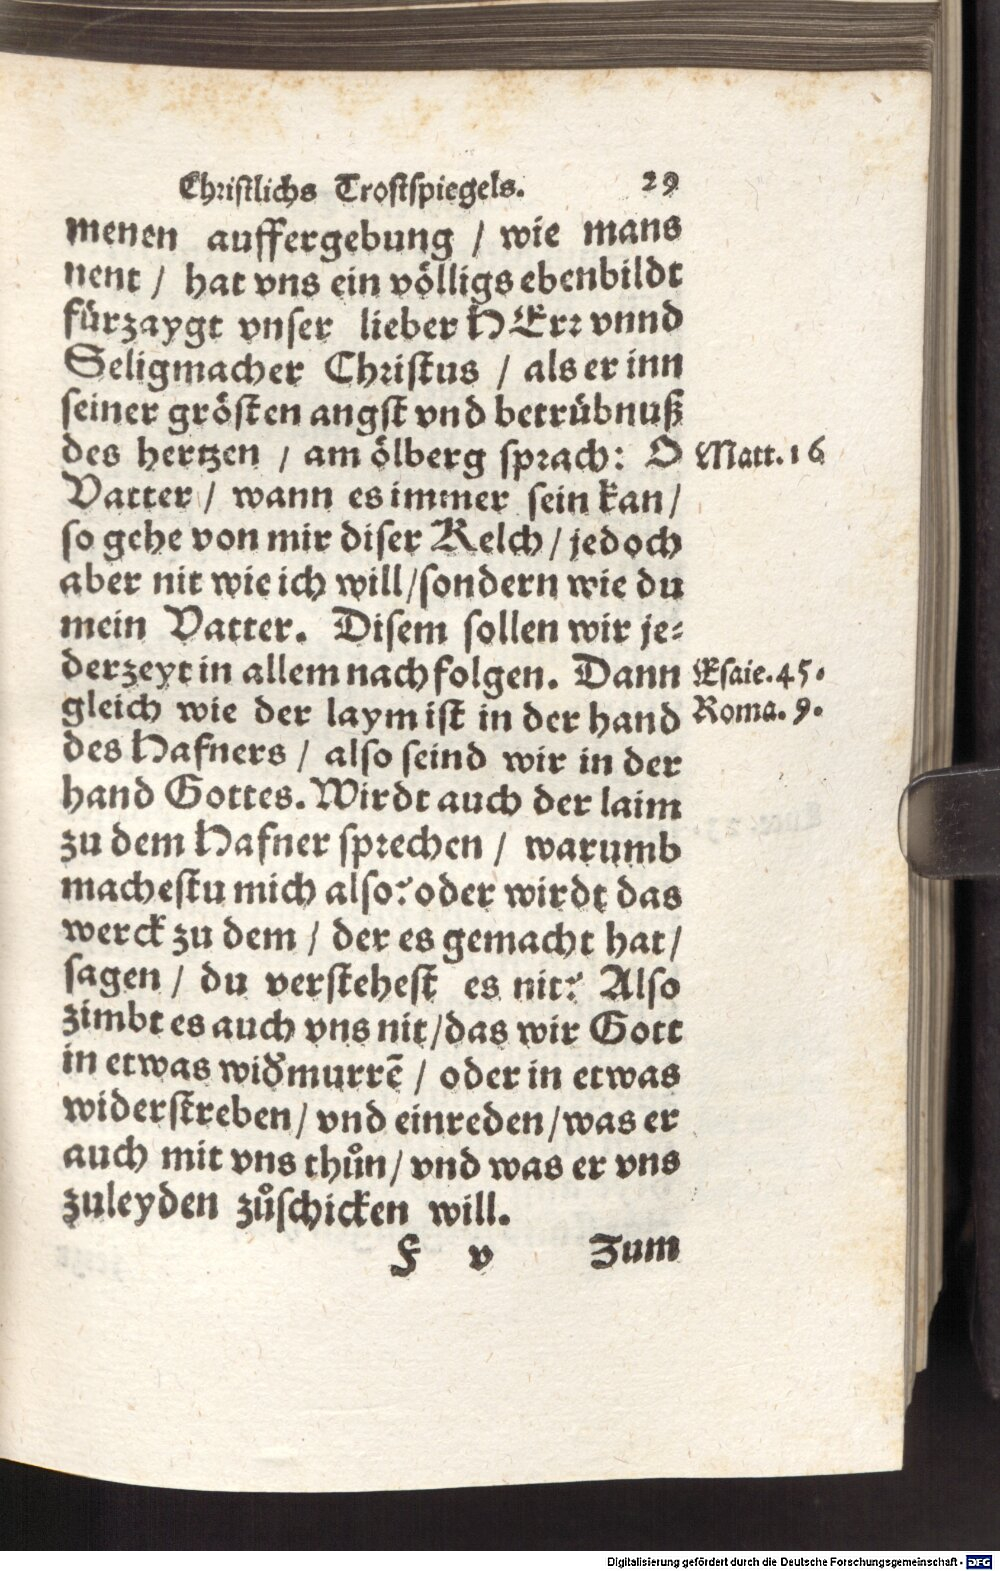 Christlichs Trostspiegels. 29
menen auffergebung / wie mans
nent / hat vns ein völligs ebenbildt
fürzaygt vnser lieber HErr vnnd
Seligmacher Christus / als er inn
seiner grösten angst vnd betrübnuß
des hertzen / am ölberg sprach: O Matt. 16
Vatter / wann es immer sein kan /
so gehe von mir diser Kelch / jedoch
aber nit wie ich will / sondern wie du
mein Vatter. Disem sollen wir je⸗
derzeyt in allem nachfolgen. Dann Esaie. 45.
gleich wie der laym ist in der hand Roma. 9.
des Hafners / also seind wir in der
hand Gottes. Wirdt auch der laim
zu dem Hafner sprechen / warumb
machestu mich also? oder wirdt das
werck zu dem / der es gemacht hat /
sagen / du verstehest es nit? Also
zimbt es auch vns nit / das wir Gott
in etwas widmurrē / oder in etwas
widerstreben / vnd einreden / was er
auch mit vns thůn / vnd was er vns
zuleyden zůschicken will.
F v Zum
Digitalisierung gefördert durch die Deutsche Forschungsgemeinschaft - DFG